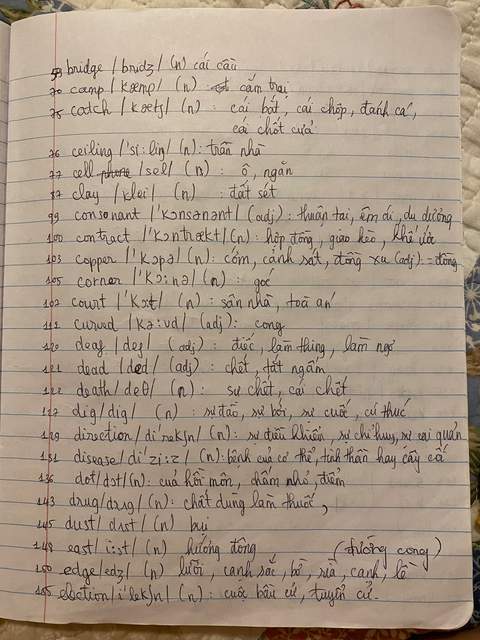 59 bridge /bridʒ/ (n) cái cầu
70 camp /kæmp/ (n) cắm trại
75 catch /kætʃ/ (n) : cái bắt, cái chộp, đánh cá,
cái chốt cửa
76 ceiling /'si:liŋ/ (n): trần nhà
77 cell /sel/ (n) : ô, ngăn
87 clay /klei/ (n) : đất sét
99 consonant /'kɔnsənənt/ (adj) : thuận tai, êm dị, du dương
100 contract /'kɔntrækt/ (n): hợp đồng, giao kèo, khế ước
103 copper /'kɔpə/ (n): cớm, cảnh sát, đồng xu (adj): = đồng
105 corner /'kɔ:nə/ (n) : góc
107 court /'kɔ:t/ (n) : sân nhà, toà án
111 curved /kə:vd/ (adj): cong
120 deaf /def/ (adj) : điếc, làm thinh, làm ngơ
121 dead /ded/ (adj) : chết, tắt ngấm
122 death /deθ/ (n) : sự chết, cái chết
127 dig /dig/ (n) : sự đào, sự bới, sự cuốc, cú thúc
129 direction /di'rekʃn/ (n): sự điều khiển, sự chỉ huy, sự cai quản
131 disease /di'zi:z/ (n): bệnh của cơ thể, tinh thần hay cây cỏ
136 dot /dɔt/ (n): của hồi môn, chấm nhỏ, điểm
143 drug /drʌg/ (n): chất dùng làm thuốc,
145 dust /dʌst/ (n) bụi
148 east /i:st/ (n) hướng đông (đường cong)
150 edge /edʒ/ (n) lưỡi, cạnh sắc, bờ, rìa, cạnh, lề
155 election /i'lekʃn/ (n) : cuộc bầu cử, tuyển cử.